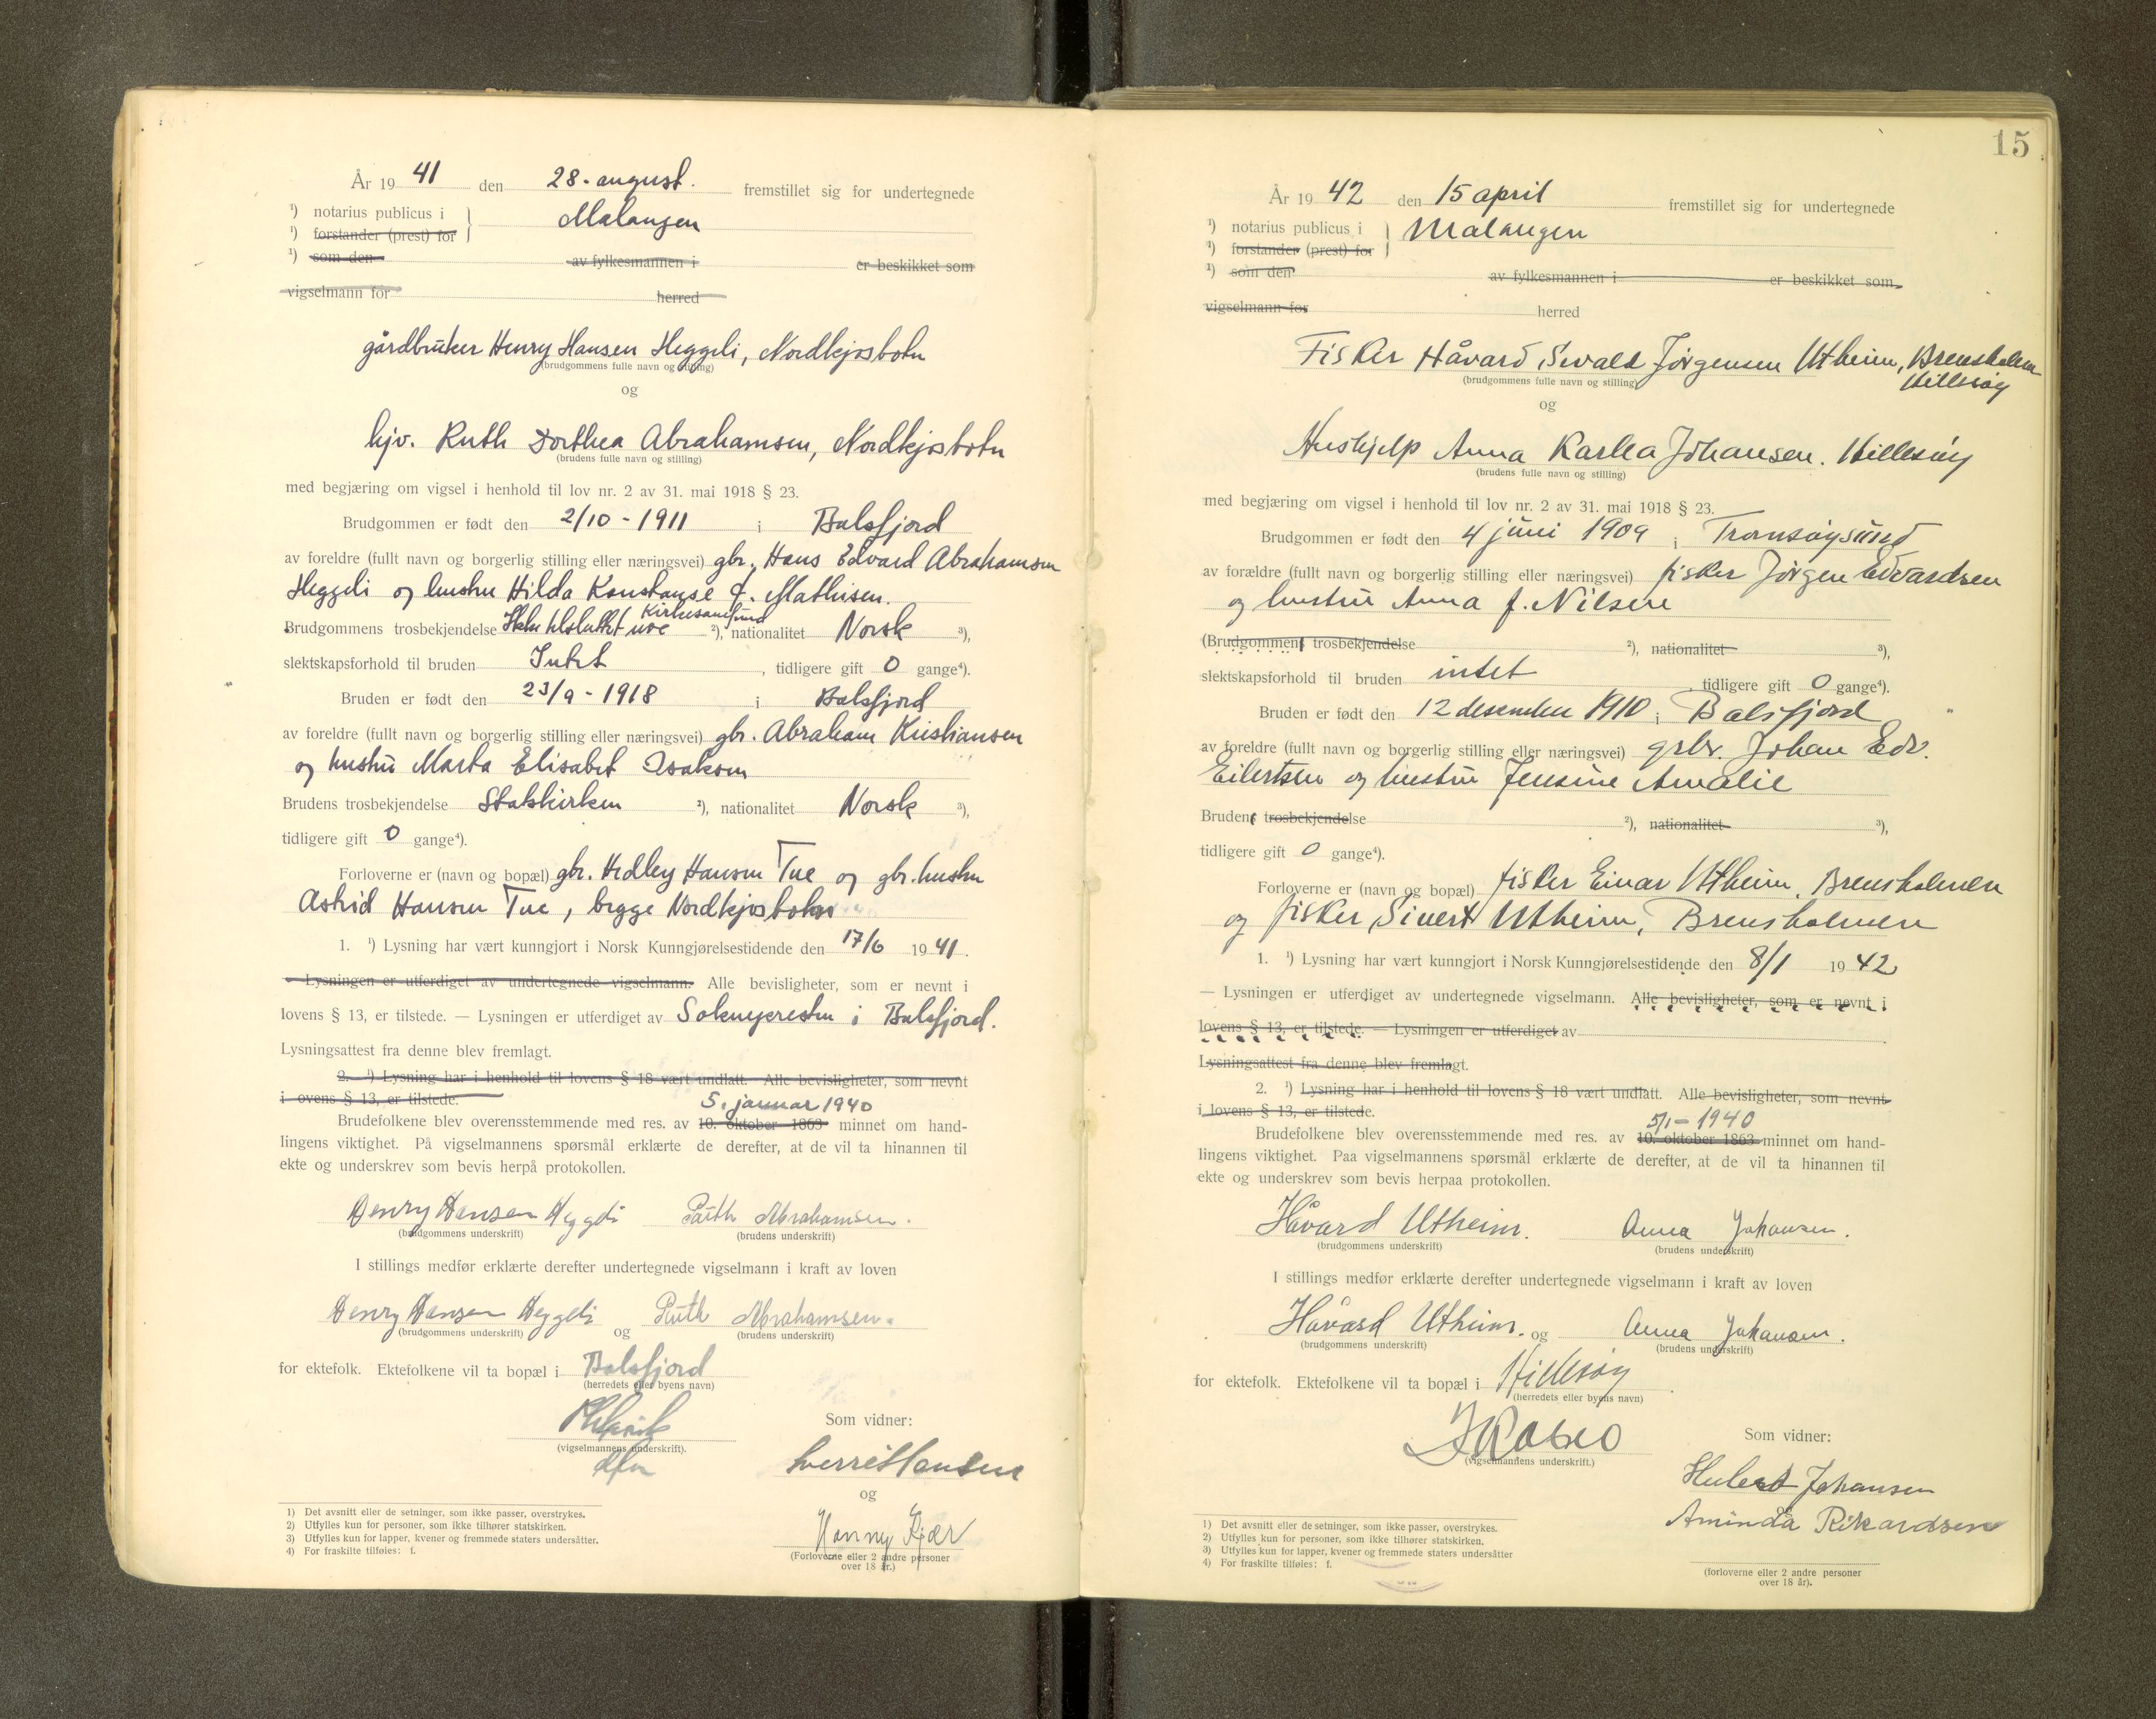 År 19 41 den 28. august. fremstillet sig for undertegnede
¹) notarius publicus i } Malangen
¹) forstander (prest) for
¹) som den av fylkesmannen i er beskikket som
vigselmann for herred
gårdbruker Henry Hansen Heggeli, Nordkjosbotn
(brudgommens fulle navn og stilling)
og
hjv. Ruth Dorthea Abrahamsen, Nordkjosbotn
(brudens fulle navn og stilling)
med begjæring om vigsel i henhold til lov nr. 2 av 31. mai 1918 § 23.
Brudgommen er født den 2/10 - 1911 i Balsfjord
av foreldre (fullt navn og borgerlig stilling eller næringsvei) gbr. Hans Edvard Abrahamsen
Heggeli og hustru Hilda Konstanse f. Mathisen.
Kirkesamfund
Brudgommens trosbekjendelse Ikke tilsluttet noe ²), nationalitet Norsk ³),
slektskapsforhold til bruden Intet , tidligere gift 0 gange⁴).
Bruden er født den 23/9 - 1918 i Balsfjord
av foreldre (fullt navn og borgerlig stilling eller næringsvei) gbr. Abraham Kristiansen
og hustru Marta Elisabet Isaksen
Brudens trosbekjendelse Statskirken ²), nationalitet Norsk ³),
tidligere gift 0 gange⁴).
Forloverne er (navn og bopæl) gbr. Hedley Hansen Tue og gbr. hustru
Astrid Hansen Tue, begge Nordkjosbotn
1. ¹) Lysning har vært kunngjort i Norsk Kunngjørelsestidende den 17/6 19 41.
— Lysningen er utferdiget av undertegnede vigselmann. Alle bevisligheter, som er nevnt i
lovens § 13, er tilstede. — Lysningen er utferdiget av Sokneprestn i Balsfjord.
Lysningsattest fra denne blev fremlagt.
2. ¹) Lysning har i henhold til lovens § 18 vært undlatt. Alle bevisligheter, som nevnt
i lovens § 13, er tilstede.
5. januar 1940
Brudefolkene blev overensstemmende med res. av 10. oktober 1863 minnet om hand-
lingens viktighet. På vigselmannens spørsmål erklærte de derefter, at de vil ta hinannen til
ekte og underskrev som bevis herpå protokollen.
Henry Hansen Heggeli Ruth Abrahamsen.
(brudgommens underskrift) (brudens underskrift)
I stillings medfør erklærte derefter undertegnede vigselmann i kraft av loven
Henry Hansen Heggeli og Ruth Abrahamsen.
(brudgommens underskrift) (brudens underskrift)
for ektefolk. Ektefolkene vil ta bopæl i Balsfjord
(herredets eller byens navn)
Som vidner:
(vigselmannens underskrift).
Sverre Hansen
og
Hanny Kjær
(Forloverne eller 2 andre personer
over 18 år.)
1) Det avsnitt eller de setninger, som ikke passer, overstrykes.
2) Utfylles kun for personer, som ikke tilhører statskirken.
3) Utfylles kun for lapper, kvener og fremmede staters undersåtter.
4) For fraskilte tilføies: f.
15
År 19 42 den 15 april fremstillet sig for undertegnede
¹) notarius publicus i } Malangen
¹) forstander (prest) for
¹) som den av fylkesmannen i er beskikket som
vigselmann for herred
Fisker Håvard Sevald Jørgensen Utheim, Brensholmen
Hillesøy
(brudgommens fulle navn og stilling)
og
Hushjelp Anna Karlea Johansen. Hillesøy
(brudens fulle navn og stilling)
med begjæring om vigsel i henhold til lov nr. 2 av 31. mai 1918 § 23.
Brudgommen er født den 4 juni 1909 i Tromsøysund
av forældre (fullt navn og borgerlig stilling eller næringsvei) fisker Jørgen Edvardsen
og hustru Anna f. Nilsen
(Brudgommens trosbekjendelse ²), nationalitet ³),
slektskapsforhold til bruden intet , tidligere gift 0 gange⁴).
Bruden er født den 12 desember 1910 i Balsfjord
av foreldre (fullt navn og borgerlig stilling eller næringsvei) grbr. Johan Edv.
Eilertsen og hustru Jensine Amalie
Brudens trosbekjendelse ²), nationalitet ³),
tidligere gift 0 gange⁴).
Forloverne er (navn og bopæl) fisker Einar Utheim, Brensholmen
og fisker Sivert Utheim, Brensholmen
1. ¹) Lysning har vært kunngjort i Norsk Kunngjørelsestidende den 8/1 19 42
— Lysningen er utferdiget av undertegnede vigselmann. Alle bevisligheter, som er nevnt i
lovens § 13, er tilstede. — Lysningen er utferdiget av .
Lysningsattest fra denne blev fremlagt.
2. ¹) Lysning har i henhold til lovens § 18 vært undlatt. Alle bevisligheter, som nevnt
i lovens § 13, er tilstede.
5/1 - 1940
Brudefolkene blev overensstemmende med res. av 10. oktober 1863 minnet om hand-
lingens viktighet. Paa vigselmannens spørsmål erklærte de derefter, at de vil ta hinannen til
ekte og underskrev som bevis herpaa protokollen.
Håvard Utheim. Anna Johansen.
(brudgommens underskrift) (brudens underskrift)
I stillings medfør erklærte derefter undertegnede vigselmann i kraft av loven
Håvard Utheim. og Anna Johansen.
(brudgommens underskrift) (brudens underskrift)
for ektefolk. Ektefolkene vil ta bopæl i Hillesøy
(herredets eller byens navn)
Som vidner:
(vigselmannens underskrift.)
Hulest Johansen
Aminda Rikardsen
(forloverne eller 2 andre personer
over 18 år).
1) Det avsnitt eller de setninger, som ikke passer, overstrykes.
2) Utfylles kun for personer, som ikke tilhører statskirken.
3) Utfylles kun for lapper, kvener og fremmede staters undersåtter
4) For fraskilte tilføies: f.